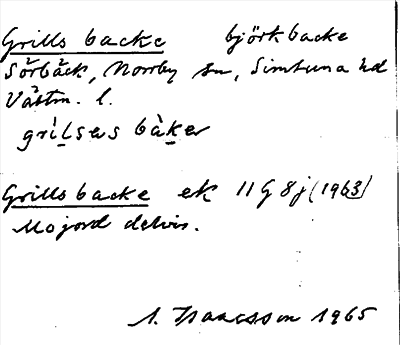 Grills backe björkbacke
Sörbäck, Norrby sn, Simtuna hd
Västm. l.
grilsas bàker
Grills backe ek 11G 8j (1963)
Mojord delvis.
A. Isaacsson 1965